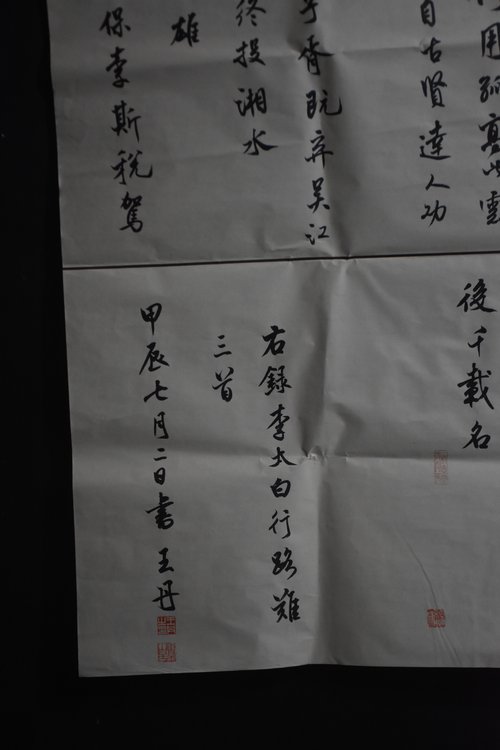 用孤高比雲
自古賢達人功
子胥既弃吴江
終投湘水
雄
保李斯税駕
後千載名
右録李太白行路難
三首
甲辰七月二日書 王丹